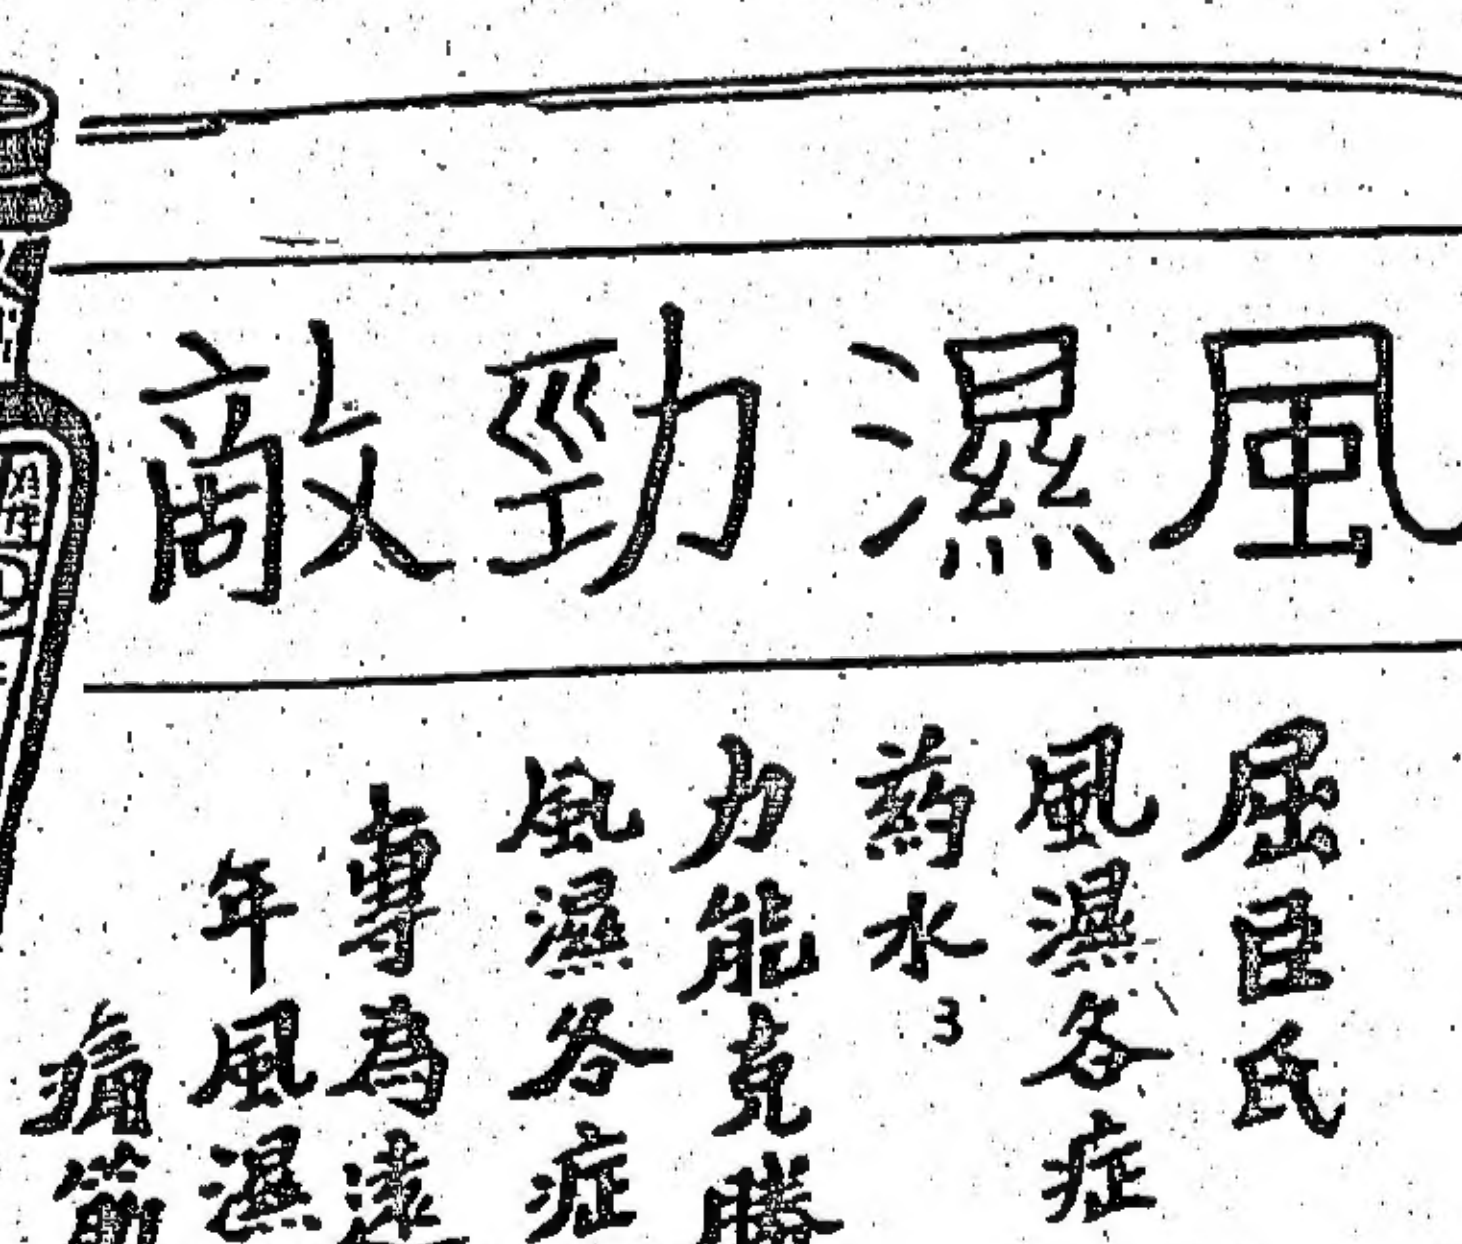 風濕勁敵
屈臣氏
風濕各症
药水3
力能克勝
風濕各症
專為遠
年風濕
痛筋